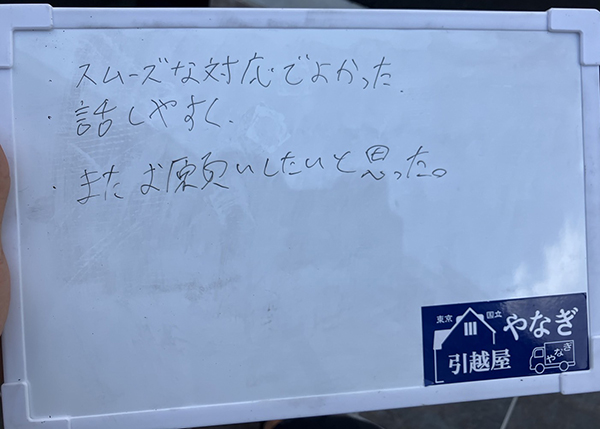 ・スムーズな対応でよかった.
・話しやすく.
・またお願いしたいと思った。
東京 国立
やなぎ
引越屋
やなぎ